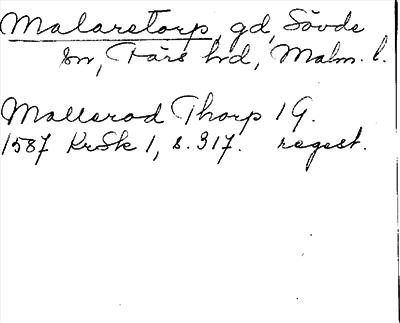 Malaretorp, gd, Sövde
sn, Färs hd, Malm. l.
Mallerod Thorp 1 G.
1587 KrSk 1, s. 317. regest.